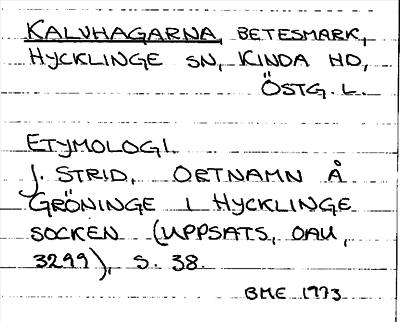 KALVHAGARNA, BETESMARK,
HYCKLINGE SN, KINDA HD,
ÖSTG. L.
ETYMOLOGI.
J. STRID, ORTNAMN Å
GRÖNINGE I HYCKLINGE
SOCKEN (UPPSATS, OAU,
3299), S. 38.
BME 1973